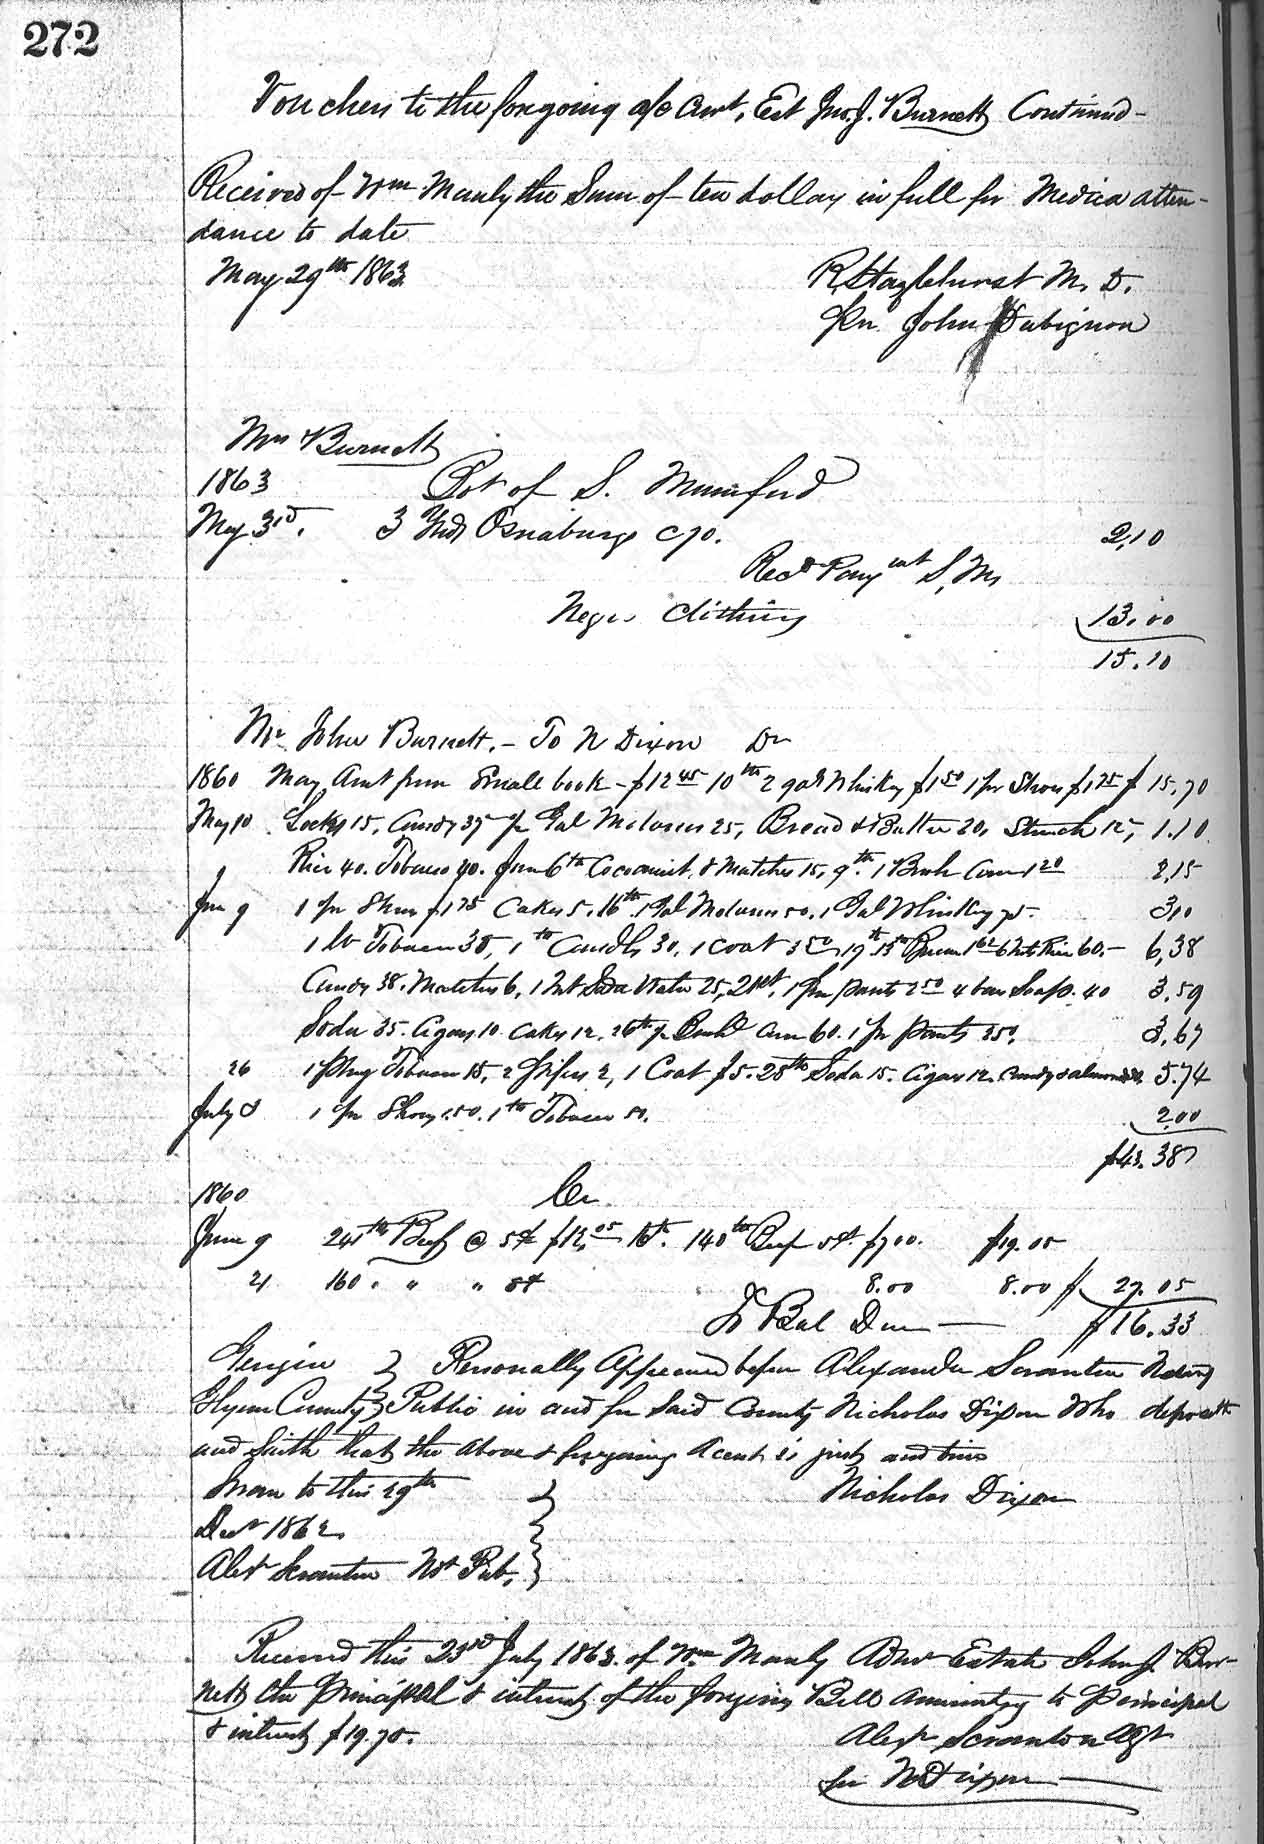 272
Vouchers to the foregoing a/c Amt, Est Jno. J. Burnett Continued-
Received of Wm Manly the Sum of ten dollars in full for Medica atten-
dance to date
May 29th 1863
R. Hazlehurst M. D.
Per John Dubignon
Mrs Burnett
1863 Bot of S. Mumford
May 3rd. 3 Yds Osnaburg c70. 2,10
Recd Payment S, M,
Negro Clothing 13.00
15.10
Mr John Burnett. - To N Dixon Dr
1860 May Amt from Small book - $12 45 10th 2 gals Whiskey $1 50 1 pr Shoes $1 75 $ 15,70
May 10 Locks 15, Candy 37 Gal Molasses 25, Bread & Butter 20, Starch 12, 1.10
Rice 40. Tobacco 40. June 6th Cocoanut & Matches 15, 9th. 1 Bush Corn 1 20 2,15
June 9 1 pr Shoes $1 75 Cakes 5. 16th. 1 Gal Molasses 50. 1 Gal Whiskey 75- 310
1 lb Tobacco 38, 1 lb Candles 30. 1 Coat 3 50 19th Rice 60.- 6,38
Candy 38. Matches 6, 1 Soda Water 25, 21st, 1 pr pants 2 50 4 bars Soap. 40 3.59
Soda 35. Cigars 10. Cakes 12. 26th Bush Corn 60. 1 pr pants 250. 3,67
26 1 Plug Tobacco 15, 2 pipes 2, 1 Coat $5. 28th Soda 15. Cigars 12. Candy & almonds 5.74
July 8 1 pr Shoes 1.50. 1 lb Tobacco 50. 2.00
$43.38
1860 Cr
June 9 241 lb Beef @ 5¢ $12,05 16th. 140 lb Beef 5¢. $7.00. $19.05
21 160 " " " 5¢ 8.00 8.00 $ 27.05
To Bal Due — $16.33
Georgia } Personally Appeared before Alexander Scranton Notary
Glynn County } Public in and for Said County Nicholas Dixon Who deposeth
and Saith that the above & foregoing Acent is just and true
Sworn to this 29th } Nicholas Dixon
Decr 1862.
Alexr Scranton Not Pub,
Received this 23rd July 1863. of Wm Manly Admr Estate John J. Bur-
nett the Principal & interest of the foregoing Bill amounting to Principal
& interest $19.70.
Alexr Scranton Agt
for N Dixon